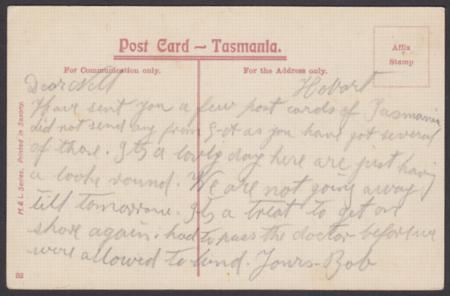 Post Card — Tasmania.
Affix
Stamp
For Communication only.
For the Address only.
M & L. Series. Printed in Saxony.
Dear Nell
Hobart
Have sent you a few post cards of Tasmania
did not send any from as you have got several
of those. Its a lovely day here are just having
a look round. We are not going away
till tomorrow. Its a treat to get on
shore again. had to pass the doctor before we
were allowed to land. Yours Bob